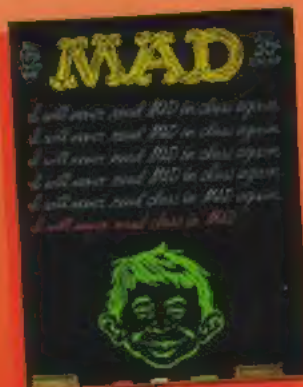 MAD
I will never read MAD in class again.
I will never read MAD in class again.
I will never read MAD in class again.
I will never read MAD in class again.
I will never read MAD in class again.
I will never read class in MAD